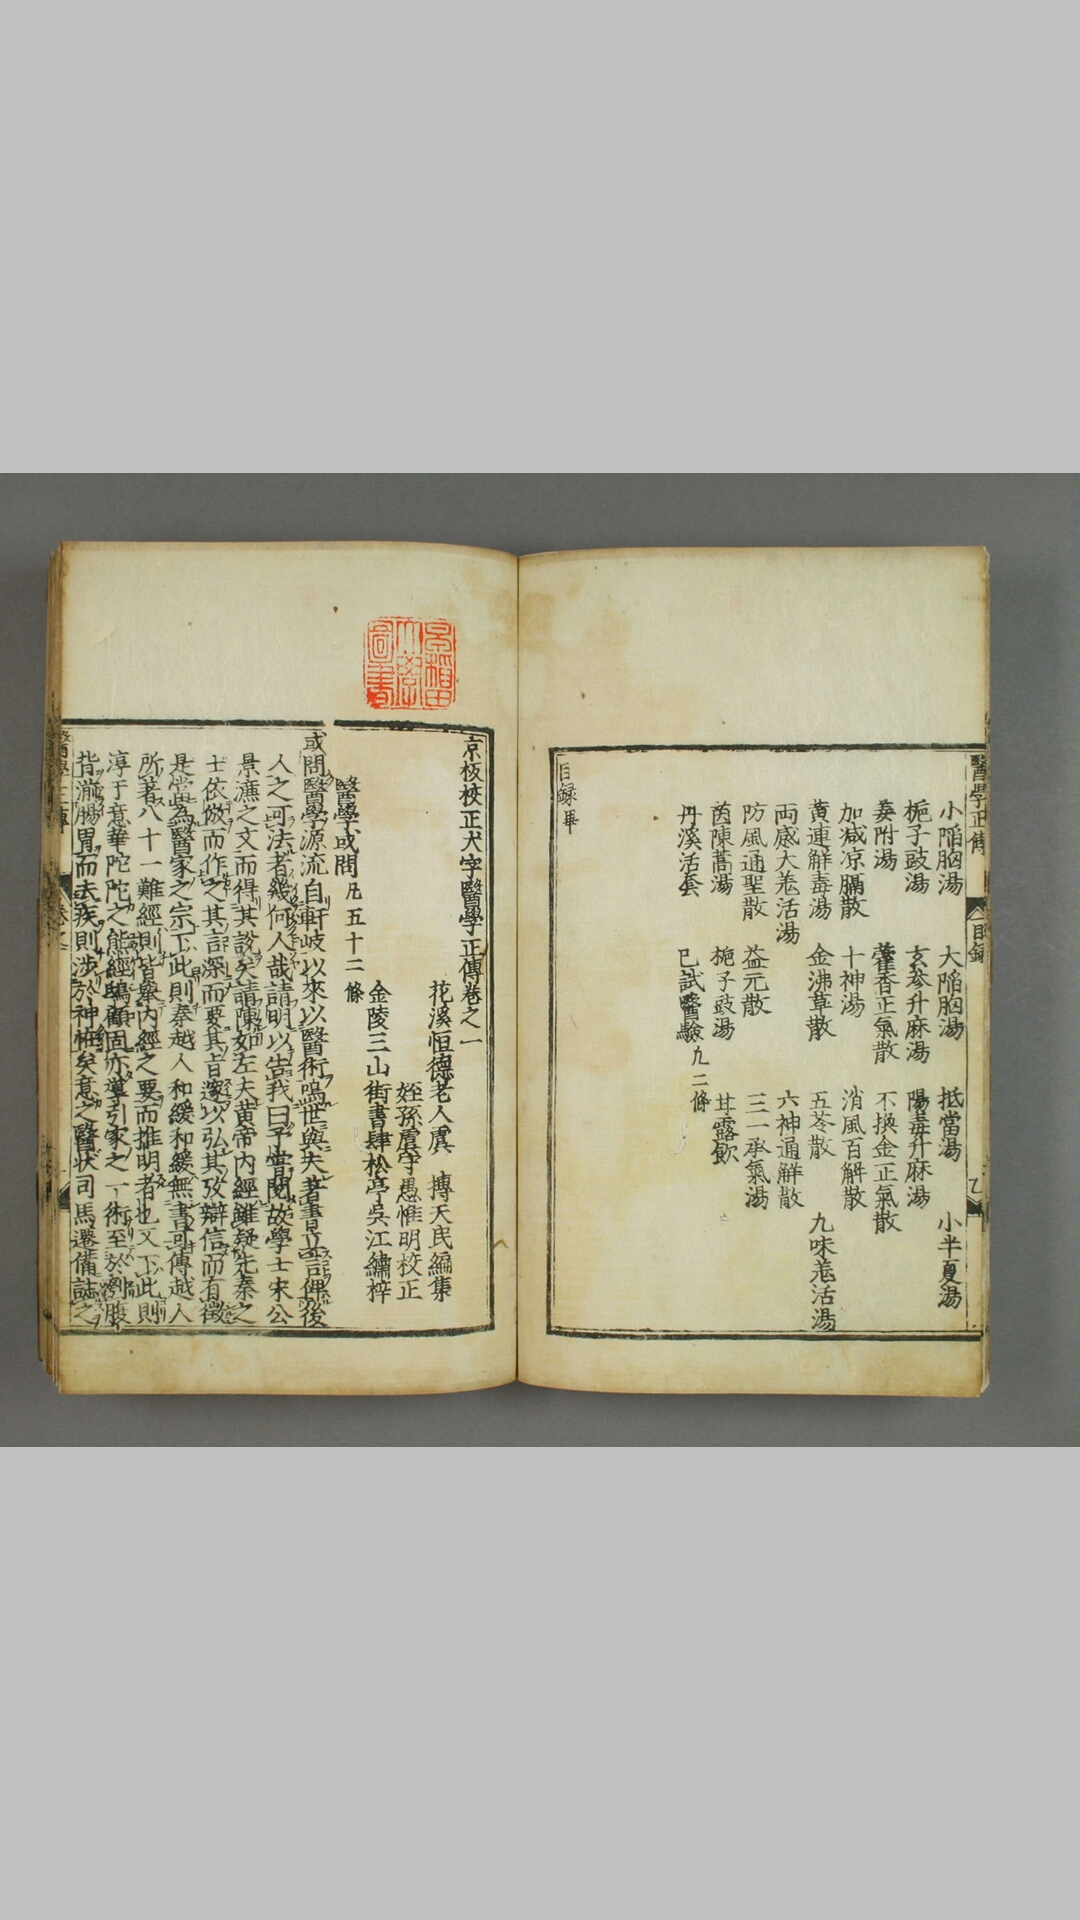 醫學正傳
目録
小陷胸湯 大陷胸湯 抵當湯 小半夏湯
梔子豉湯 玄參升麻湯 陽毒升麻湯
姜附湯 藿香正氣散 不換金正氣散
加减凉膈散 十神湯 消風百解散
黄連解毒湯 金沸草散 五苓散 九味羗活湯
兩感大羗活湯 六神通解散
防風通聖散 益元散 三一承氣湯
茵陳蒿湯 梔子豉湯 甘露飲
丹溪活套 已試醫驗九二條
目録畢
早稲田大學圖書
京板校正大字醫學正傳卷之一
花溪恒德老人虞 摶天民編集
姪孫虞守愚惟明校正
金陵三山街書肆松亭吳江繡梓
醫學或問凡五十二條
或問醫學源流自軒岐以來以醫術鳴世與夫著書立言俾後
人之可法者幾何人哉請明以告我曰予嘗閱故學士宋公
景濂之文而得其說矣請陳如左夫黄帝内經雖疑先秦之
士依倣而作之其言深而要其旨邃以弘其攷辯信而有徵
是當為醫家之宗下此則秦越人和緩和緩無書可傳越人
所著八十一難經則皆舉内經之要而推明者也又下此則
淳于意華陀陀之熊經鴟顧固亦導引家之一術至於刳腹
背湔腸胃而去疾則涉於神怪矣意之醫狀司馬遷備誌之